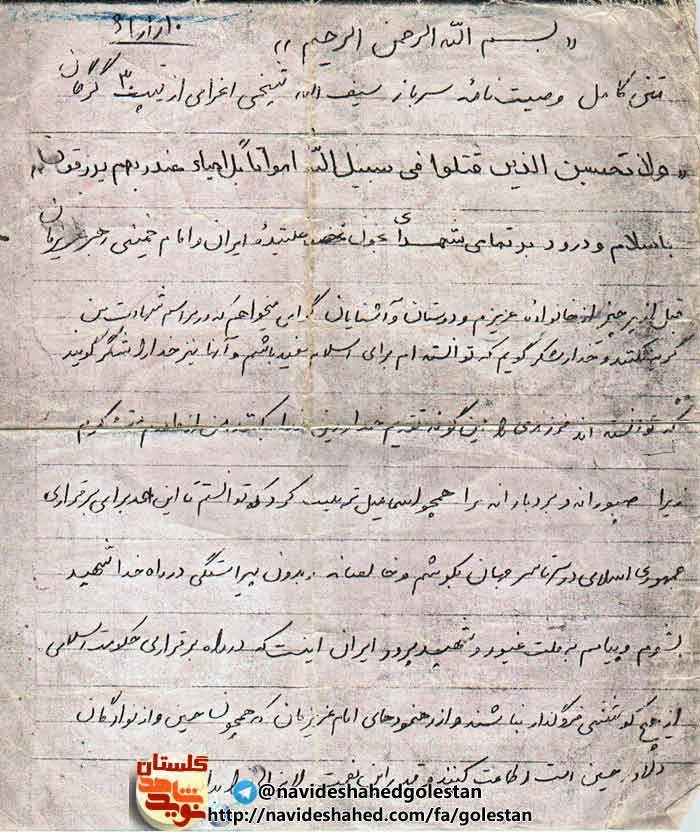 ۶۱/۱/۱۰
« بسم الله الرحمن الرحیم »
متن کامل وصیت نامه سرباز سیف الله شیخی اعزامی از تیپ ۳۰ گرگان
« ولا تحسبن الذین قتلوا فی سبیل الله امواتاً بل احیاء عند ربهم یرزقون »
با سلام و درود بر تمامی شهدای ایران و امام خمینی رهبر
قبل از هر چیز از خانواده عزیزم و دوستان و آشنایان گرامی میخواهم که در مراسم شهادت من
گریه نکنند و خدا را شکر گویم که توانسته ام برای اسلام مفید باشم و آنها نیز خدا را شکر گویند
که توانسته اند فرزندی را اینگونه تقدیم خدا من از مادرم متشکرم
زیرا صبورانه و بردبارانه مرا همچو اسماعیل تربیت کرد که توانستم تا این حد برای برقراری
جمهوری اسلامی در سرتاسر جهان بکوشم و خالصانه و بدون در راه خدا شهید
بشوم و پیامم به ملت غیور و شهید پرور ایران اینست که در راه برقراری حکومت اسلامی
از هیچ کوششی فروگذار نباشند و از رهنمودهای امام عزیزمان که همچون حسین و از نوادگان
حسین است اطاعت کنند و قدر این نعمت
گلستان
نوید شاهد
@navideshahedgolestan
https://navideshahed.com/fa/golestan